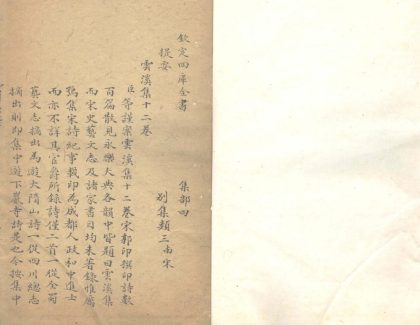 欽定四庫全書
集部四
提要
別集類三 南宋
雲溪集十二卷
臣等謹案雲溪集十二卷宋郭印撰印詩數
百篇散見永樂大典各韻中皆題曰雲溪集
而宋史藝文志及諸家書目均未著錄惟厲
鶚集宋詩紀事載印為成都人政和中進士
而亦不詳其官爵所錄詩僅二首一從全蜀
藝文志摘出為遊大隋山詩一從四川總志
摘出則即集中遊下巖寺詩是也今按集中